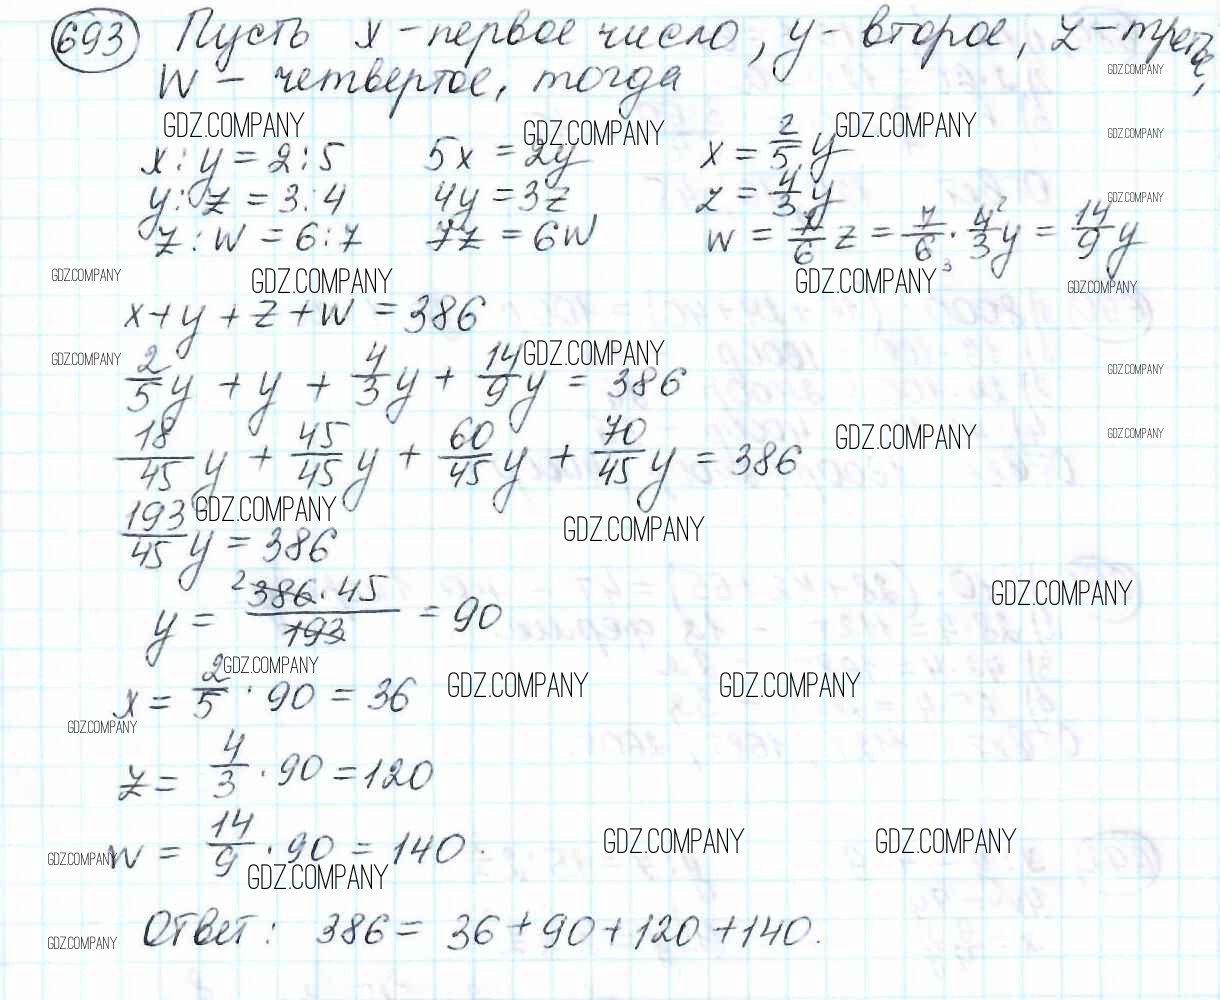 693 Пусть x – первое число, y – второе, z – третье,
w – четвертое, тогда
GDZ.COMPANY GDZ.COMPANY GDZ.COMPANY GDZ.COMPANY GDZ.COMPANY
x : y = 2 : 5 5x = 2y x = 2/5 y
y : z = 3 : 4 4y = 3z z = 4/3 y GDZ.COMPANY
z : w = 6 : 7 7z = 6w w = 7/6 z = 7/6 3 · 4 2/3 y = 14/9 y
GDZ.COMPANY GDZ.COMPANY GDZ.COMPANY GDZ.COMPANY
x + y + z + w = 386
GDZ.COMPANY GDZ.COMPANY GDZ.COMPANY
2/5 y + y + 4/3 y + 14/9 y = 386
GDZ.COMPANY GDZ.COMPANY
18/45 y + 45/45 y + 60/45 y + 70/45 y = 386
GDZ.COMPANY GDZ.COMPANY
193/45 y = 386
GDZ.COMPANY
y = 2 386 · 45/193 = 90
GDZ.COMPANY GDZ.COMPANY GDZ.COMPANY
x = 2/5 · 90 = 36
GDZ.COMPANY
z = 4/3 · 90 = 120
GDZ.COMPANY GDZ.COMPANY
w = 14/9 · 90 = 140.
GDZ.COMPANY GDZ.COMPANY
Ответ: 386 = 36 + 90 + 120 + 140.
GDZ.COMPANY